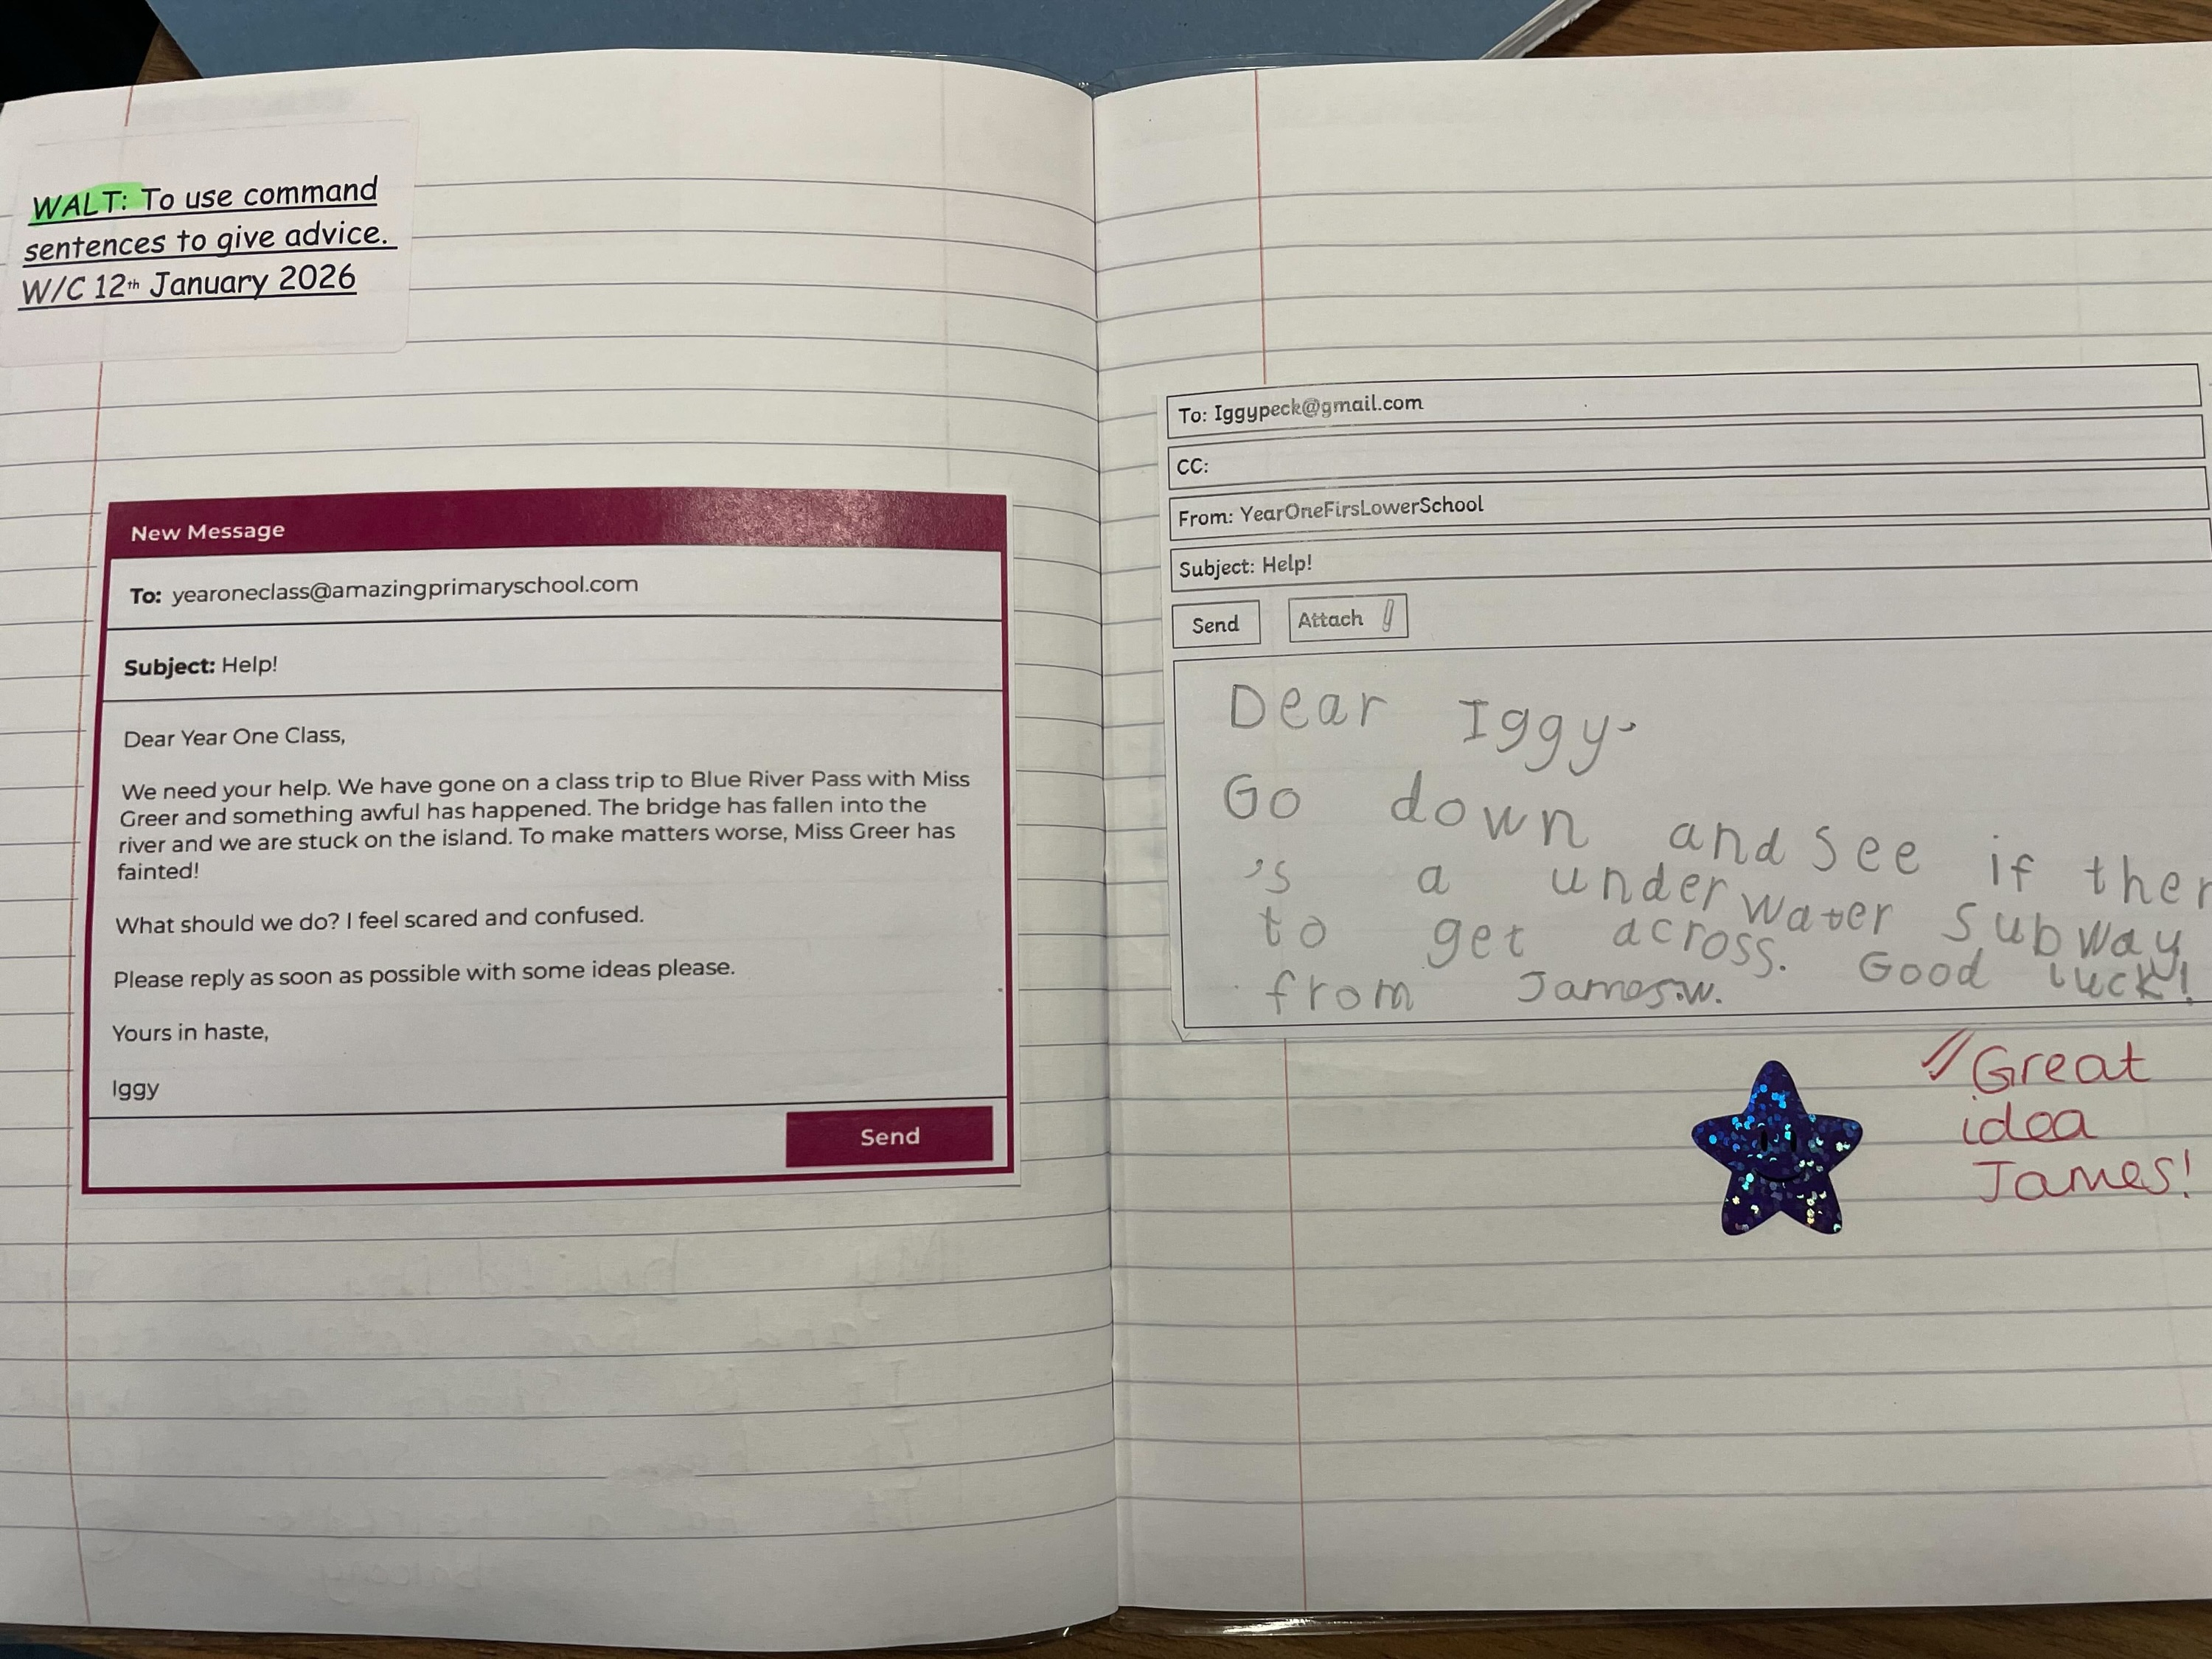 WALT: To use command
sentences to give advice.
W/C 12th January 2026
New Message
To: yearoneclass@amazingprimaryschool.com
Subject: Help!
Dear Year One Class,
We need your help. We have gone on a class trip to Blue River Pass with Miss
Greer and something awful has happened. The bridge has fallen into the
river and we are stuck on the island. To make matters worse, Miss Greer has
fainted!
What should we do? I feel scared and confused.
Please reply as soon as possible with some ideas please.
Yours in haste,
Iggy
Send
To: Iggypeck@gmail.com
CC:
From: YearOneFirsLowerSchool
Subject: Help!
Send Attach
Dear Iggy.
Go down and see if ther
's a under water subway
to get across. Good luck!
from James.w.
Great
idea
James!